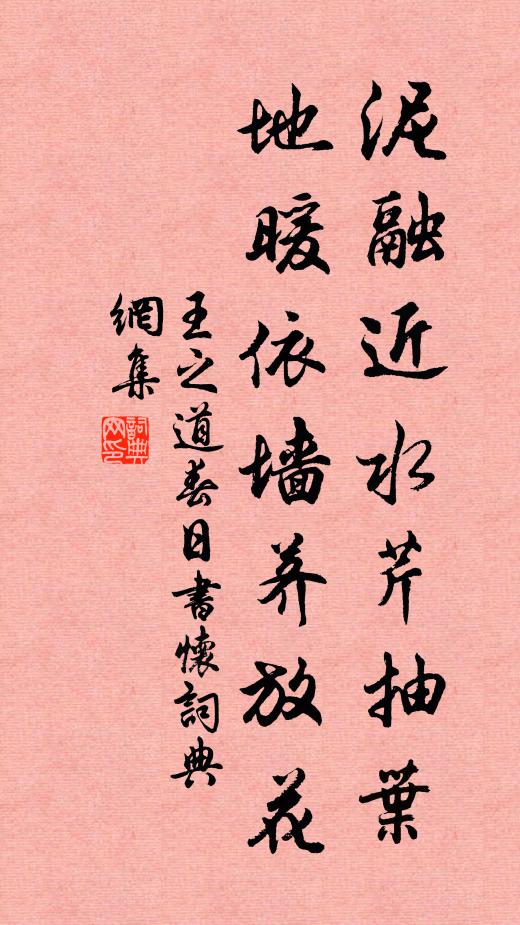 泥融近水芹抽葉
地暖依墙荠放花
王之道春日書懷詞典
網集
詞典
网印